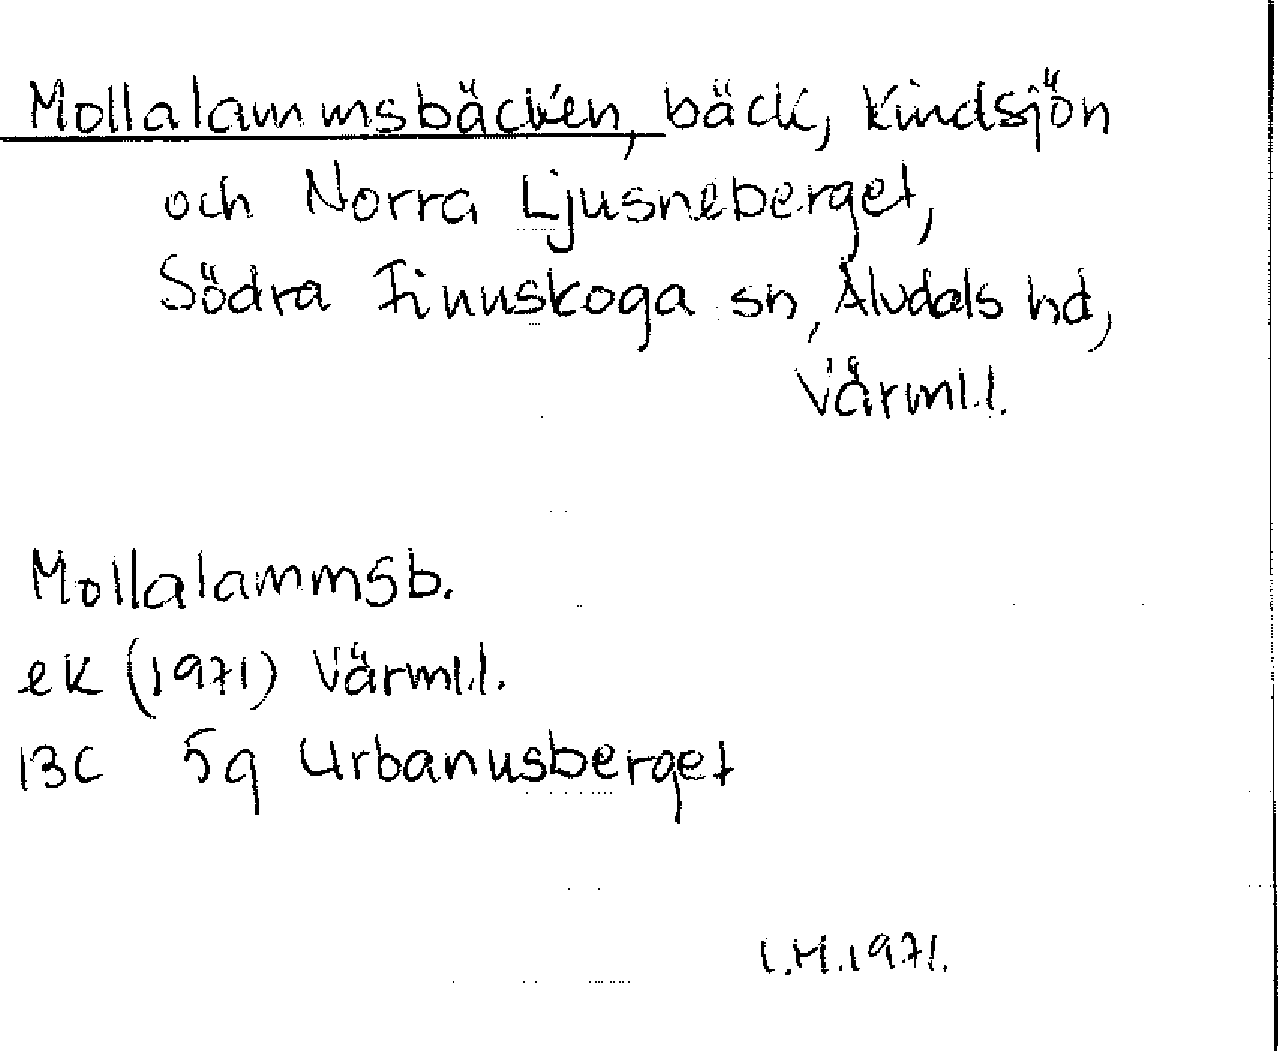 Mollalammsbäcken, bäck, Kindsjön
och Norra Ljusneberget,
Södra Finnskoga sn, Älvdals hd,
Värml.l.
Mollalammsb.
ek (1971) Värml.l.
13C 5g Urbanusberget
I.H.1971.